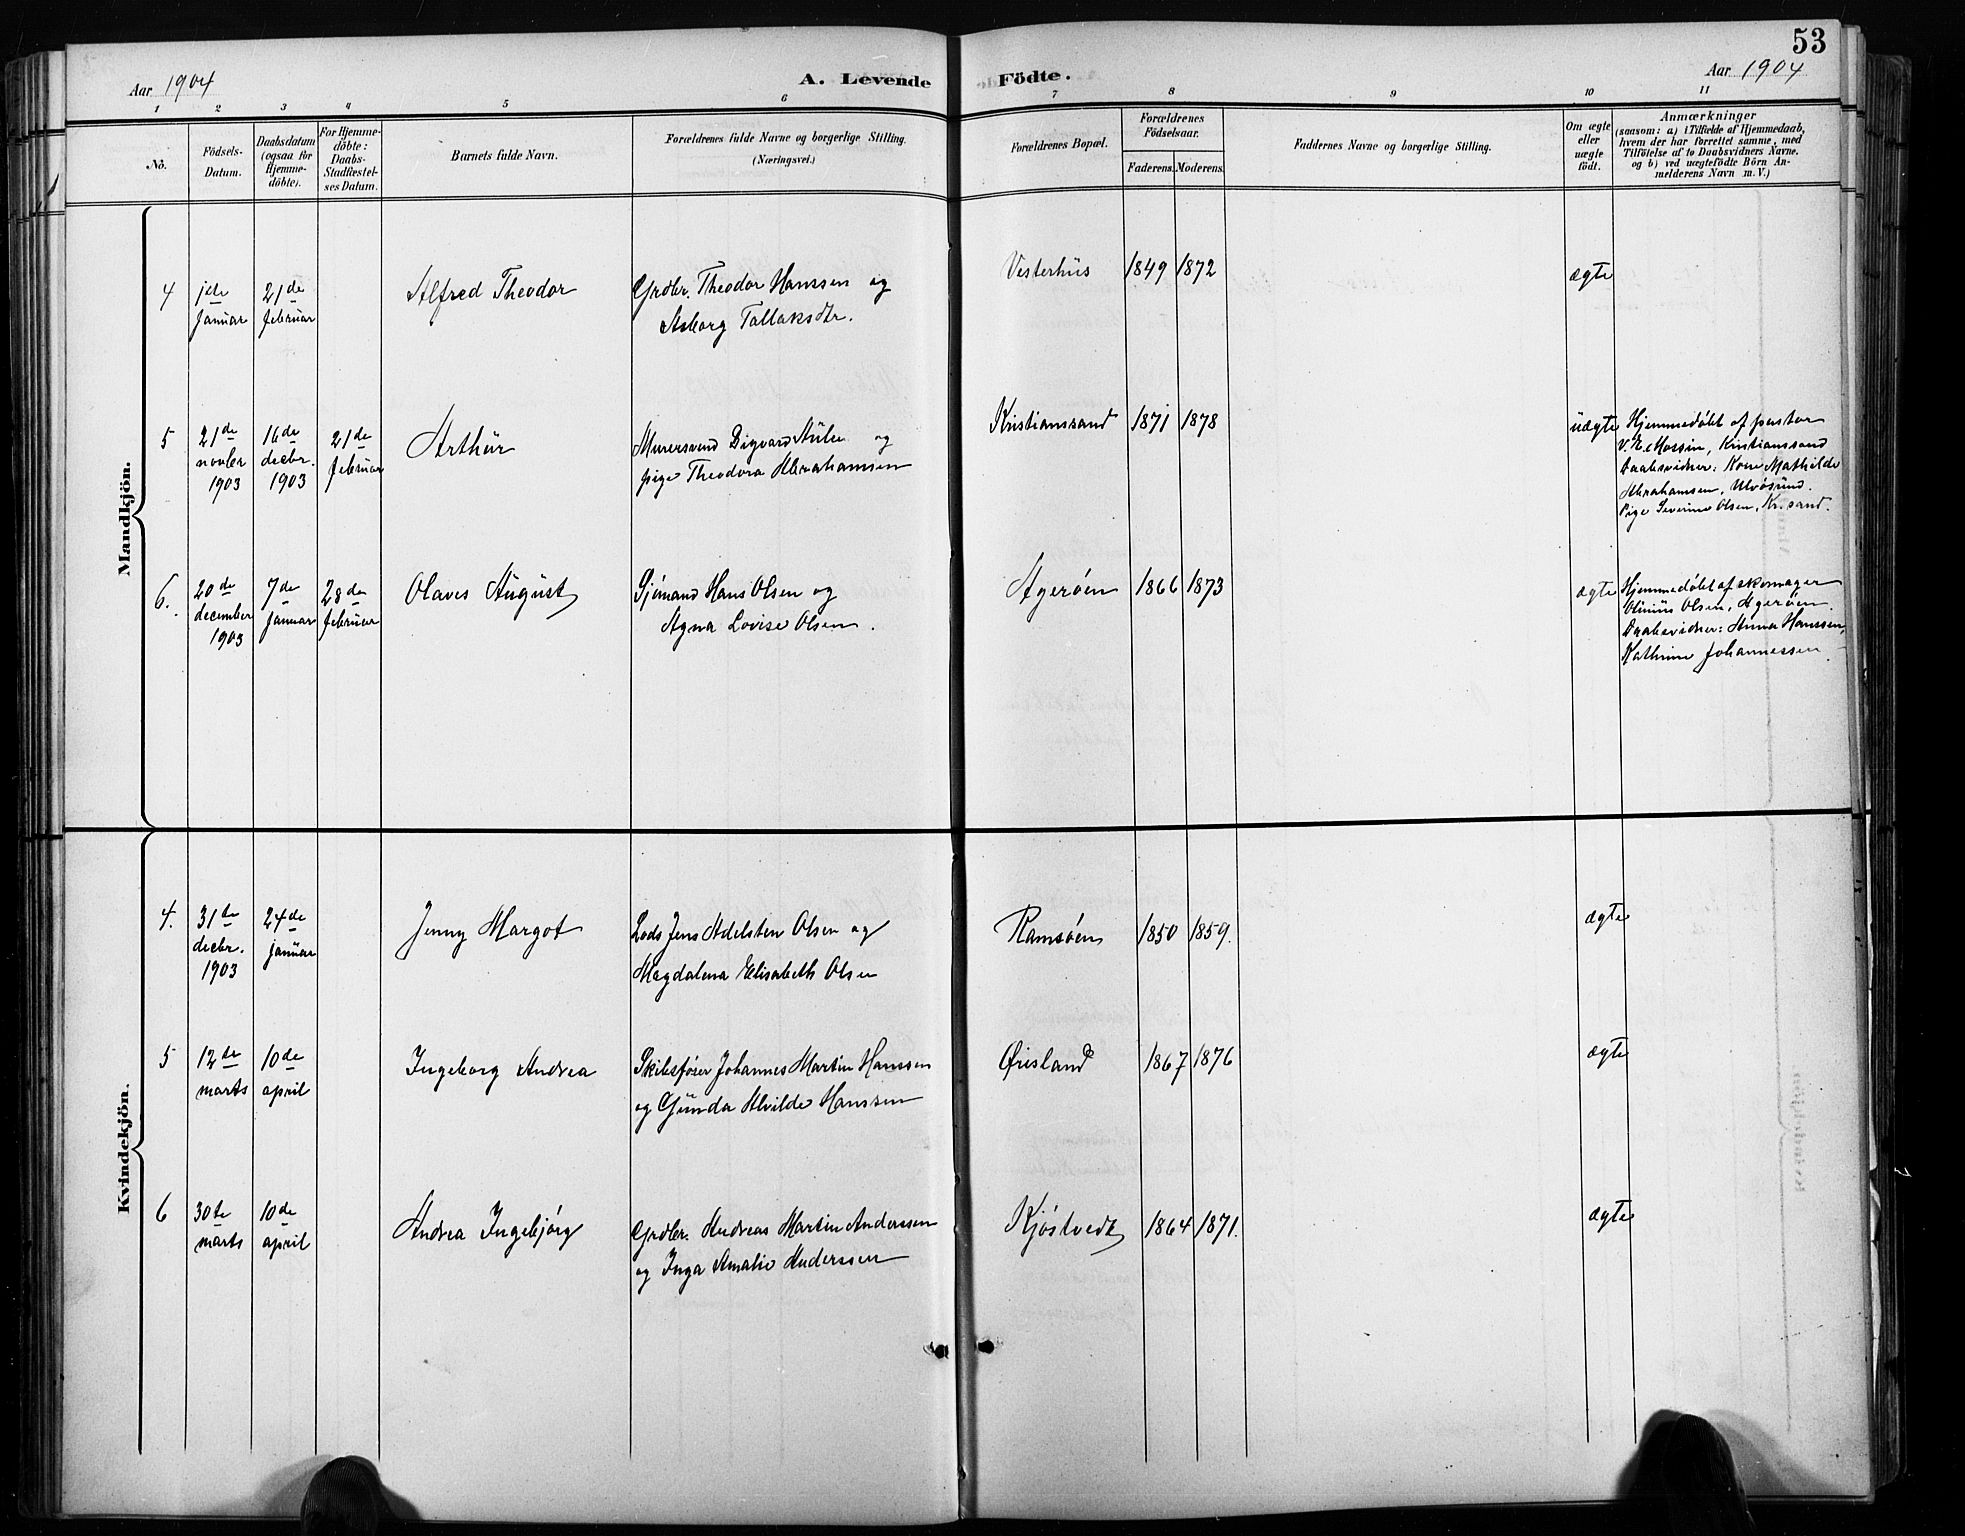 53
Aar 1904
A. Levende Födte.
Aar 1904
1 2 3 4 5 6 7 8 9 10 11
Nö.
Födsels-
Datum.
Daabsdatum
(ogsaa for
Hjemme-
döbte).
For Hjemme-
döbte:
Daabs-
Stadfæstel-
ses Datum.
Barnets fulde Navn.
Forældrenes fulde Navne og borgerlige Stilling.
(Næringsvei.)
Forældrenes Bopæl.
Forældrenes
Födselsaar.
Faderens. Moderens.
Faddernes Navne og borgerlige Stilling.
Om ægte
eller
uægte
födt.
Anmærkninger
(saasom: a) i Tilfælde af Hjemmedaab,
hvem der har forrettet samme, med
Tilföielse af to Daabsvidners Navne.
og b) ved uægtefödte Börn An-
melderens Navn m. V.)
Mandkjön.
4
1ste
januar
21de
februar
Alfred Theodor
Grdbr. Theodor Hanssen og
Asborg Tallaksdtr.
Vesterhus
1849 1872
ægte
5
21de
novbr
1903
16de
decbr.
1903
21de
februar
Arthur
Murersvend Sigvard Aule og
pige Theodora Abrahamsen
Kristianssand
1871 1878
uægte
Hjemmedøbt af pastor
V. E. Mossin, Kristianssand
Daabsvidner: Kone Mathilde
Abrahamsen, Ulvøsund.
Pige Severine Olsen, Kr.sand.
6.
20de
december
1903
7de
januar
28de
februar
Olaves August
Sjømand Hans Olsen og
Agna Lovise Olsen.
Agerøen
1866 1873
ægte
Hjemmedøbt af skomager
Olsen, Agerøen.
Daabsvidner: Anna Hanssen,
Kathrine Johannessen.
Kvindekjön.
4.
31te
decbr.
1903
24de
januar
Jenny Margot
Lods Jens Adelsten Olsen og
Magdalena Elisabeth Olsen
Ramsøen
1850 1859.
ægte
5
12te
marts
10de
april
Ingeborg Andrea
Skibsfører Johannes Martin Hanssen
og Gunda Alvilde Hanssen
Ørisland
1867 1876
ægte
6
30te
marts
10de
april
Andrea Ingebjørg
Grdbr. Andreas Martin Anderssen
og Inga Amalie Anderssen
Kjøstvedt
1864 1871.
ægte